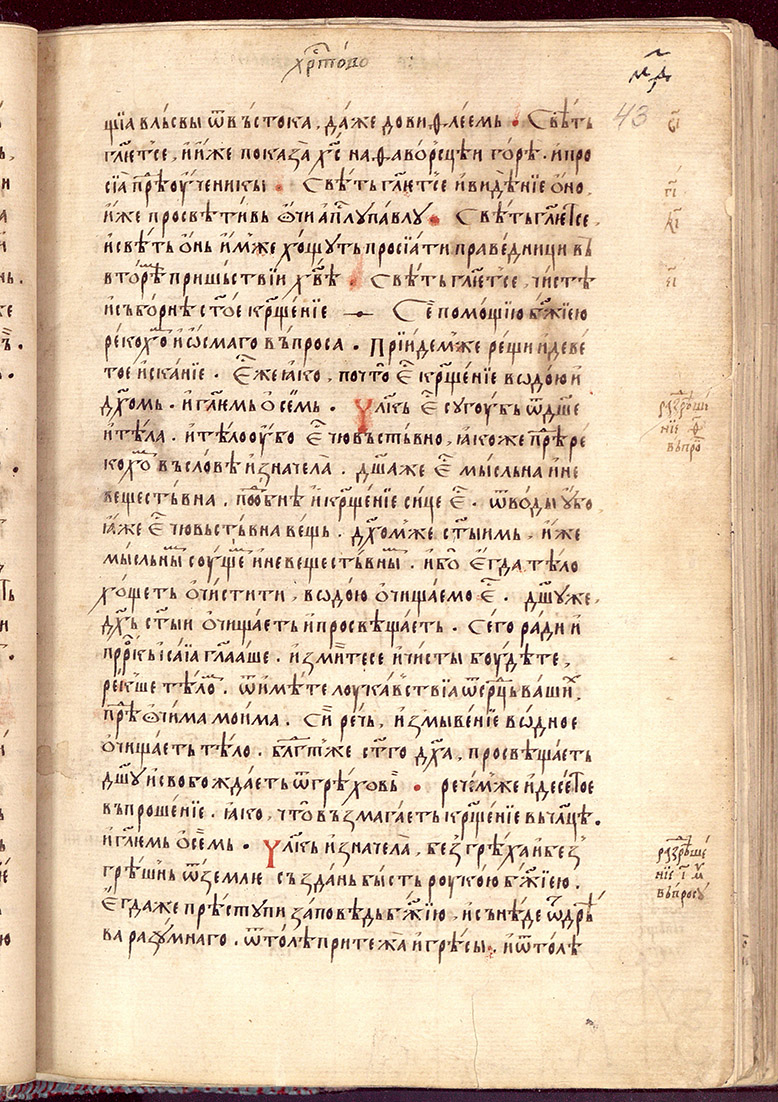 хрⷭ҇тово
м҃д
43
щїа влъсвы ѿвъстока, даже довиѳлеемь • Свѣть
гл҃ѥтсе, ииже показа х҃с наѳаворсцѣи горѣ. ипро
сїа прѣⷣ оученикы • Свѣть гл҃ѥтсе ивидѣнїе оно,
иже просвѣтивь очи апⷭ҇лу павлу • Свѣть гл҃ѥтсе,
исвѣть онь имже хощуть просїати праведници въ
вторѣⷨ пришьствїи хв҃ѣ • Свѣть гл҃ѥтсе, чистѣ
исъборнѣ ст҃ое крⷭ҇щенїе — Се помощїю б҃жїею
рекохоⷨ иѡсмаго въпроса. Прїидемже рещи идеве
тое исканїе. Еже ꙗко, почто еⷭ҇ крⷭ҇щенїе водою и
дх҃омь. игл҃емь осемь. Чл҃кь еⷭ҇ сугоубь ѿдш҃е
итѣла. итѣло оубо еⷭ҇ чювьствьно, ꙗкоже прѣⷣре
кохоⷨ въсловѣ изначела. дш҃аже еⷭ҇ мысльна ине
вещестьвна, поⷣобнѣ икрⷭ҇щенїе сице еⷭ҇. ѿводы убо
ꙗже еⷭ҇ чювьствьна вещь. дх҃омже ст҃ыимь, иже
мысльныⷨ соущеⷨ иневещестьвныⷨ. ибо егда тѣло
хощеть очистити, водою очищаемо еⷭ҇. дш҃уже,
дх҃ь ст҃ыи очищаеть ипросвѣщаеть. Сего ради и
пр҃ркь ісаїа гл҃ааше. измїитесе ичисты боудѣте,
рекше тѣлоⷨ. ѿимѣте лоукавьствїа ѿсрⷣць вашиⷯ
прѣⷣ очима моима. Сїи речь, измывенїе водное
очищаеть тѣло. блгⷣтьже ст҃го дх҃а, просвѣщаеть
дш҃у исвобождаеть ѿгрѣховь • речемже идесетое
въпрошенїе. ꙗко, что възмагаеть крⷭ҇щенїе вьчл҃цѣ.
игл҃емь осемь. Чл҃кь изначела, без грѣха ибез
грѣшнь ѿземлѥ създань бысть роукою б҃жїею.
Егдаже прѣступи заповѣдь б҃жїю, исънѣде ѿдрѣ
ва разумнаго. ѿтолѣ притежа игрѣсы, иѿтолѣ
в҃і
г҃і
д҃і
е҃і
разⷣрѣше
нїе ѳ҃
въпроⷭ
разⷣрѣше
нїе і҃ м
въпросу